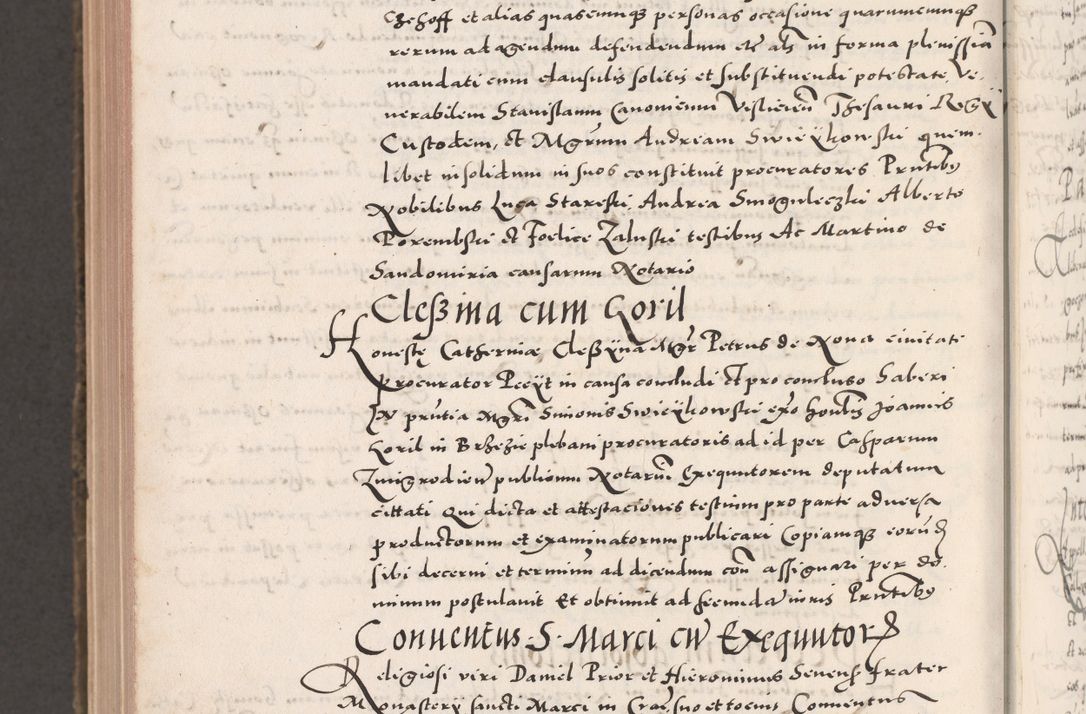 et alias quascumque personas occasione quarumcumque
rerum ad agendum defendendum etc als in forma plenissia
mandati cum clausulis solitis et substituendi potestate, Ve-
nerabilem Stanislaum Canonicum Visliciem Thesauri Regÿ
Custodem, et Mgrum Andream Swieÿkowski quem-
libet insolidum in suos constituit procuratores Prntibus
Nobilibus Luca Stareski Andrea Smoguleczki Alberto
Porembski et Foelice Zaluski testibus Ac Martino de
Sandomiria causarum Notario
Cleßina cum Goril
Honeste Catherinæ Cleßÿna Mgr Petrus de Nova civitate
procurator Peeÿt in causa concludi et pro concluso haberi
In prntia Mgri Simonis Swieÿkowski exo honblis Joannis
Goril in Brzezie plebani procuratoris ad id per Casparum
Zmigrodien publicum Notarium Exequutorem deputatum
cittati Qui dicta et attestaciones testium pro parte adversa
productorum et examinatorum publicari Copiamque eorum
sibi decerni et terminum ad dicendum con assignari per do-
minum postulavit Et obtinuit ad secunda iuris Prntibus
Conventus S. Marci cum Exequutor
Religiosi viri Daniel Prior et Hieronimus Senens frater
Monasterÿ sancti Marci in Crac suo et tocius Conventus